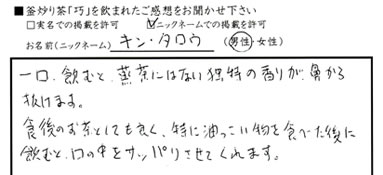 ■釜炒り茶「巧」を飲まれたご感想をお聞かせ下さい
□実名での掲載を許可 ☑ニックネームでの掲載を許可
お名前(ニックネーム) キン・タロウ (男性・女性)
一口、飲むと、蒸茶にはない独特の香りが、鼻から
抜けます。
食後のお茶としても良く、特に油っこい物を食べた後に
飲むと、口の中をサッパリさせてくれます。